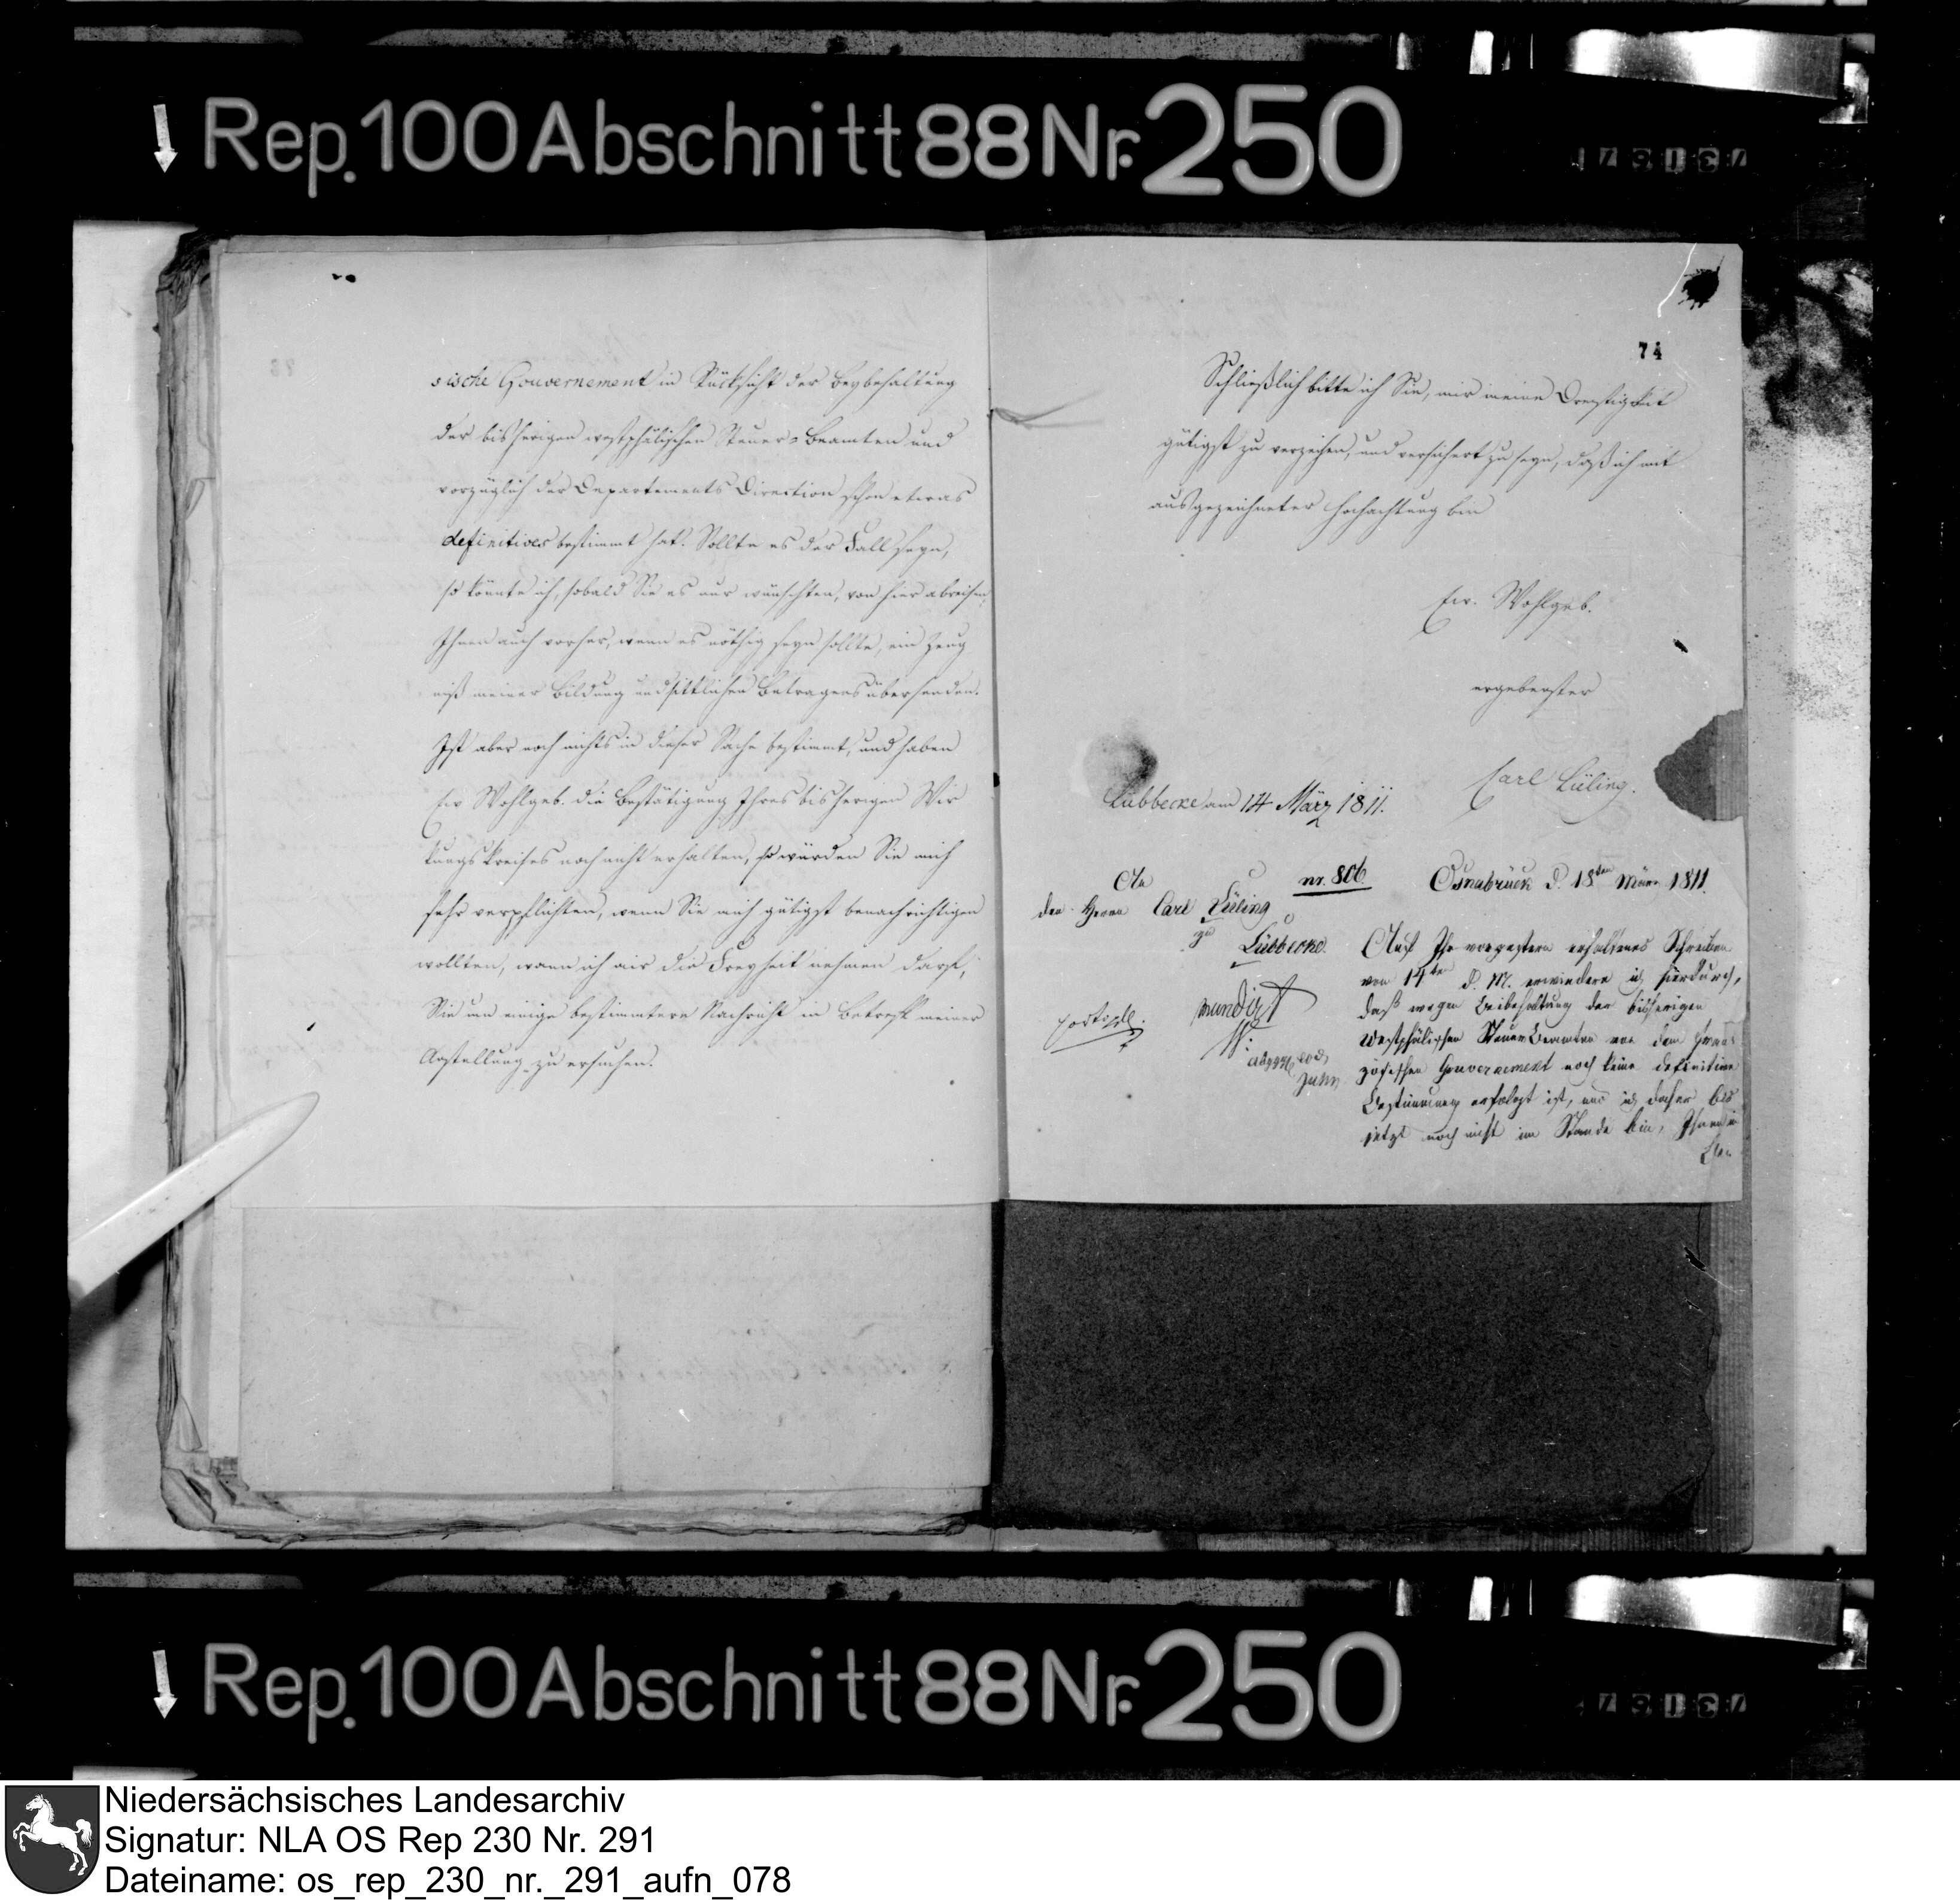 Rep. 100 Abschnitt 88 Nr. 250
sische Gouvernement in Rücksicht der Beybehaltung
der bisherigen westphälischen Steuer-Beamten und
vorzüglich der Departements Direction schon etwas
definitives bestimmt hat. Sollte es der Fall seyn,
so könnte ich, sobald Sie es nur wünschten, von hier abreisen,
Ihnen auch vorher, wenn es nöthig seyn sollte, ein Zeug
niß meiner Bildung und sittlichen Betragens übersenden.
Ist aber noch nichts in dieser Sache bestimmt, und haben
Ew Wohlgeb. die Bestätigung Ihres bisherigen Wir
kungskreises noch nicht erhalten, so würden Sie mich
sehr verpflichten, wenn Sie mich gütigst benachrichtigen
wollten, wann ich mir die Freyheit nehmen darf,
Sie um einige bestimmtere Nachricht in Betreff meiner
Anstellung zu ersuchen.
74
Schließlich bitte ich Sie, mir meine Dreistigkeit
gütigst zu verzeihen, und versichert zu seyn, daß ich mit
ausgezeichneter Hochachtung bin
Ew. Wohlgeb.
ergebenster
Carl Lüling.
Lübbecke am 14 März 1811.
An
den Herrn Carl Lüling
zu
Lübbecke.
nr. 806
mundirt
Osnabrück d. 18ten März 1811.
Auf Ihr vorgestern erhaltenes Schreiben
vom 14ten d. M. erwiedere ich hierdurch,
daß wegen Beibehaltung der bisherigen
Westphälischen Steuer Beamten von dem Fran
zösischen Gouvernement noch keine definitive
Bestimmung erfolgt ist, und ich daher bis
jetzt noch nicht im Stande bin, Ihnen
Rep. 100 Abschnitt 88 Nr. 250
Niedersächsisches Landesarchiv
Signatur: NLA OS Rep 230 Nr. 291
Dateiname: os_rep_230_nr._291_aufn_078